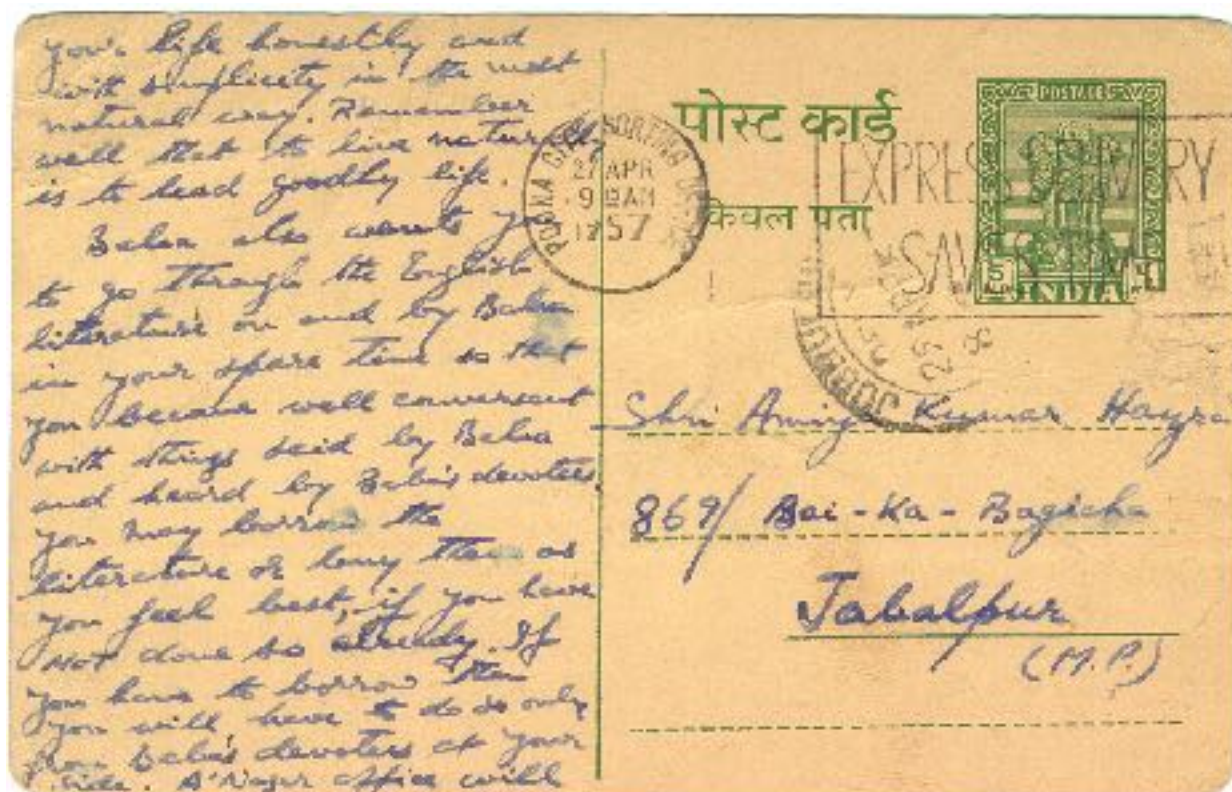 your life honestly and
with simplicity in the most
natural way. Remember
well that to live naturally
is to lead goodly life.
Baba also wants you
to go through the English
literature on and by Baba
in your spare time so that
you become well conversant
with things said by Baba
and heard by Baba's devotees.
you may borrow the
literature or buy them as
you feel best, if you have
not done so already. If
you have to borrow them
you will have to do so only
from Baba's devotees at your
side. A'Nagar office will
पोस्ट कार्ड
केवल पता
POONA
27 APR
9 AM
1957
EXPRESS DELIVERY
SAVES TIME
POSTAGE
INDIA
Shri Amiya Kumar Hazra
869/ Bai-Ka-Bagicha
Jabalpur
(M.P.)